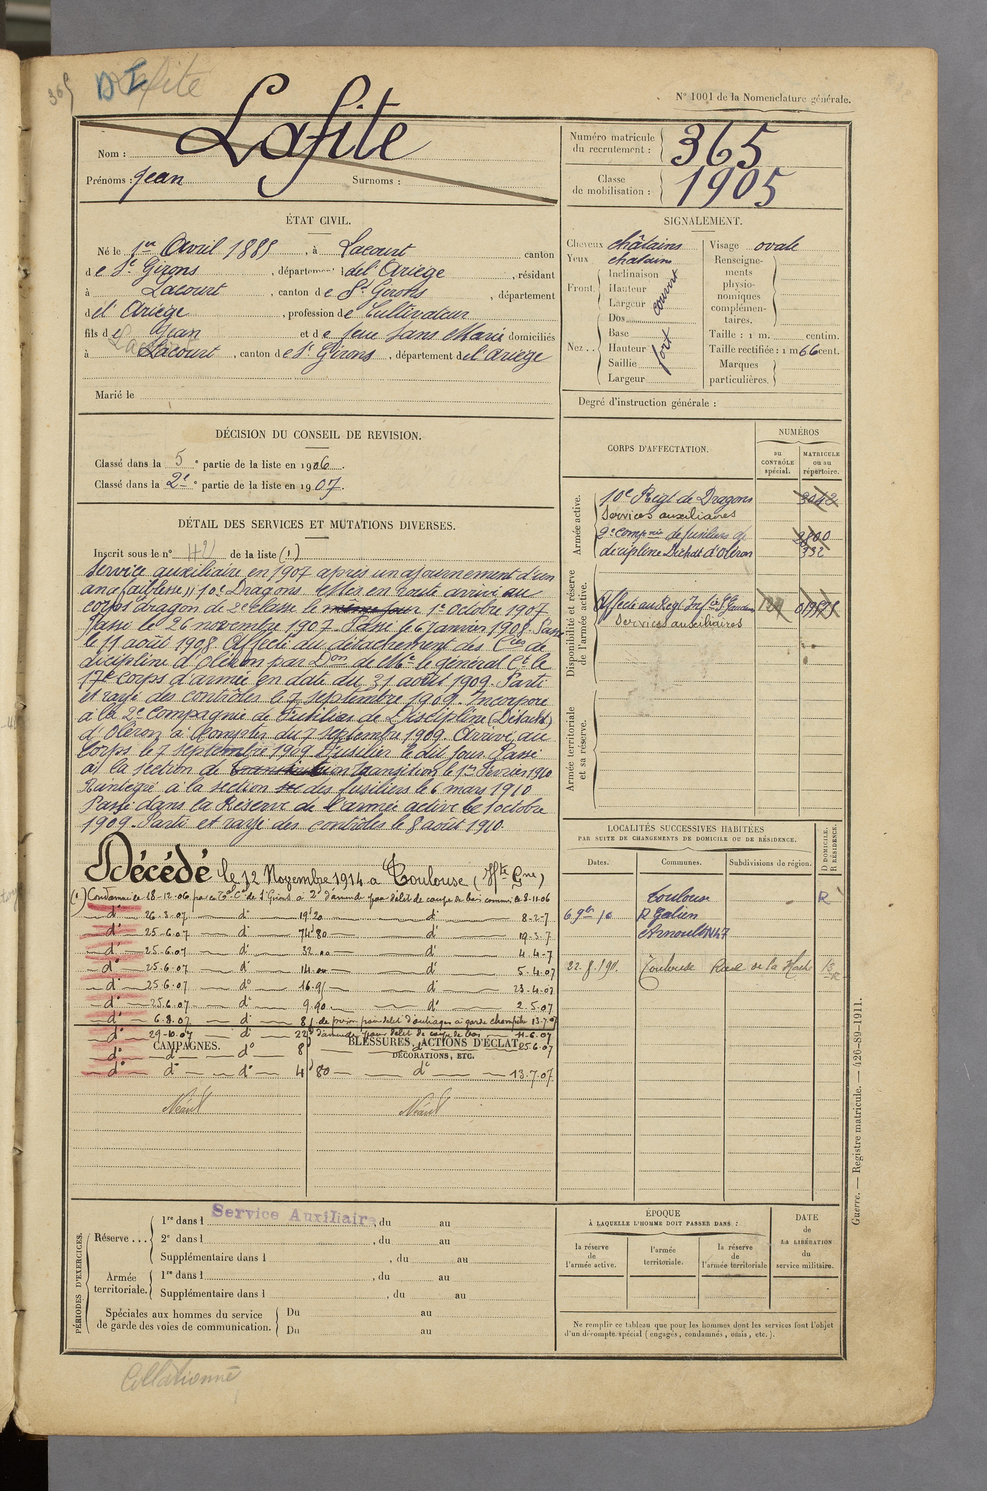 365
DI
Lafite
N° 1001 de la Nomenclature générale.
Nom : Lafite
Prénoms : Jean Surnoms :
Numéro matricule du recrutement : 365
Classe de mobilisation : 1905
ÉTAT CIVIL.
Né le 1er Avril 1885, à Lacourt canton
de St Girons, département de l'Ariège, résidant
à Lacourt, canton de St Girons, département
de l'Ariège, profession de Cultivateur
fils de Jean et de feue Sans Marie domiciliés
à Lacourt, canton de St Girons, département de l'Ariège
Marié le
SIGNALEMENT.
Cheveux châtains
Yeux chatains
Front. Inclinaison Hauteur Largeur couvert
Nez.. Dos Base Hauteur Saillie Largeur fort
Visage ovale
Renseignements physionomiques complémentaires.
Taille : 1 m. centim.
Taille rectifiée : 1 m 66 cent.
Marques particulières.
Degré d'instruction générale :
DÉCISION DU CONSEIL DE REVISION.
Classé dans la 5e partie de la liste en 1906.
Classé dans la 2e partie de la liste en 1907.
DÉTAIL DES SERVICES ET MUTATIONS DIVERSES.
Inscrit sous le n° 42 de la liste (1)
Service auxiliaire en 1907 après un ajournement d'un
an a faiblesse 10e Dragons en route arrivé au
corps dragon de 2e classe le même jour 1er Octobre 1907
Passé le 26 novembre 1907. Passé le 6 Janvier 1908. Passé
le 11 août 1908. Affecté au détachement des Cies de
dicipline d'Oléron par Don de Mr le général Ct le
17e corps d'armée en date du 31 août 1909. Parti
et rayé des contrôles le 7 septembre 1909. Incorporé
à la 2e Compagnie de Fusiliers de Discipline (Détacht)
d'Oléron à compter du 7 septembre 1909. Arrivé au
Corps le 7 septembre 1909 Fusilier le dit jour. Passé
à la section de transition le 1er Février 1910
Réintégré à la section des fusiliers le 6 mars 1910
Passé dans la Réserve de l'armée active le 1 octobre
1909. Parti et rayé des contrôles le 8 août 1910.
Décédé le 12 Novembre 1914 à Toulouse (Hte Gne)
(1) Condamné le 18-12-06 par le Tal Cel de St Girons à 2f d'amende pour délit de coupe de bois commis le 8-11-06
d° 26-3-07 d° 19f20 d° 8-2-7
d° 25-6-07 d° 74f80 d° 19-3-7
d° 25-6-07 d° 32.00 d° 4-4-7
d° 25-6-07 d° 14.00 d° 5-4-07
d° 25-6-07 d° 16.91 d° 23-4-07
d° 25-6-07 d° 9.90 d° 2-5-07
d° 6-8-07 d° 8j de prison pour délit d'outrages à garde champêtre 13-7-07
d° 29-10-07 d° 22f d'amende pour délit de coupe de bois 11-6-07
d° d° d° 8f d° 25-6-07
d° d° d° 4f80 d° 13-7-07
CAMPAGNES.
Néant
BLESSURES, ACTIONS D'ÉCLAT,
DÉCORATIONS, ETC.
Néant
CORPS D'AFFECTATION.
NUMÉROS
au CONTRÔLE spécial.
MATRICULE ou au répertoire.
Armée active.
10e Régt de Dragons 3042
Services auxiliaires
2e compnie de fusiliers de 2800
discipline Dépôt d'Oléron 332
Disponibilité et réserve de l'armée active.
Affecté au Régt Inf. de St Gaudens
Services auxiliaires
Armée territoriale et sa réserve.
LOCALITÉS SUCCESSIVES HABITÉES
PAR SUITE DE CHANGEMENTS DE DOMICILE OU DE RÉSIDENCE.
Dates. Communes. Subdivisions de région. D DOMICILE. R RÉSIDENCE.
6 9bre 10 Toulouse R Galien Arnoult N47 R
Toulouse Rue de la
PÉRIODES D'EXERCICES.
Réserve ... 1re dans l Service Auxiliaire, du au
2e dans l , du au
Supplémentaire dans l , du au
Armée territoriale. 1re dans l , du au
Supplémentaire dans l , du au
Spéciales aux hommes du service de garde des voies de communication. Du au
Du au
ÉPOQUE
À LAQUELLE L'HOMME DOIT PASSER DANS :
la réserve de l'armée active.
l'armée territoriale.
la réserve de l'armée territoriale
DATE de LA LIBÉRATION du service militaire.
Ne remplir ce tableau que pour les hommes dont les services font l'objet
d'un décompte spécial (engagés, condamnés, omis, etc.).
Guerre. — Registre matricule. — 426-89-1911.
Collationné